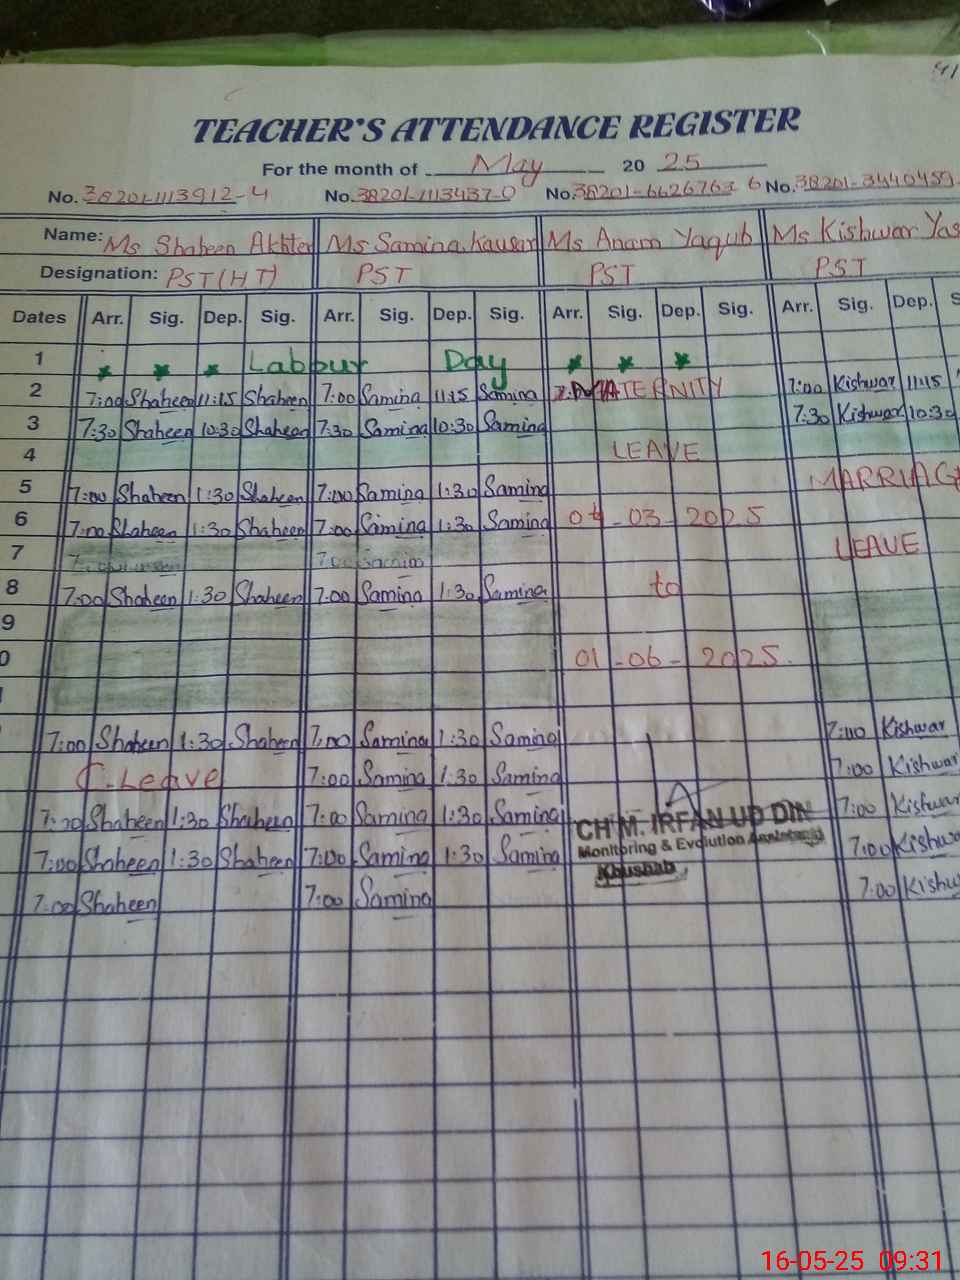 TEACHER'S ATTENDANCE REGISTER
For the month of May 20 25
No. 38201-1113912-4 No. 38201-1113437-0 No. 38201-6626763 6 No. 38201-3440459
Name: Ms Shaheen Akhter Ms Samina Kausar Ms Anam Yaqub Ms Kishwar Yas
Designation: PST(HT) PST PST PST
Dates Arr. Sig. Dep. Sig. Arr. Sig. Dep. Sig. Arr. Sig. Dep. Sig. Arr. Sig. Dep. S
1 Labour Day
2 7:00 Shaheen 11:15 Shaheen 7:00 Samina 11:15 Samina MATERNITY 7:00 Kishwar 11:15
3 7:30 Shaheen 10:30 Shaheen 7:30 Samina 10:30 Samina 7:30 Kishwar 10:30
4 LEAVE
5 7:00 Shaheen 1:30 Shaheen 7:00 Samina 1:30 Samina MARRIAG
6 7:00 Shaheen 1:30 Shaheen 7:00 Samina 1:30 Samina 04-03-2025
7 7:00 Samina LEAVE
8 7:00 Shaheen 1:30 Shaheen 7:00 Samina 1:30 Samina to
9
0 01-06-2025.
7:00 Shaheen 1:30 Shaheen 7:00 Samina 1:30 Samina 7:00 Kishwar
C.Leave 7:00 Samina 1:30 Samina 7:00 Kishwar
7:00 Shaheen 1:30 Shaheen 7:00 Samina 1:30 Samina 7:00 Kishwar
CH M. IRFAN UD DIN
7:00 Shaheen 1:30 Shaheen 7:00 Samina 1:30 Samina Monitoring & Evolution 7:00 Kishwa
Khushab
7:00 Shaheen 7:00 Samina 7:00 Kishw
16-05-25 09:31